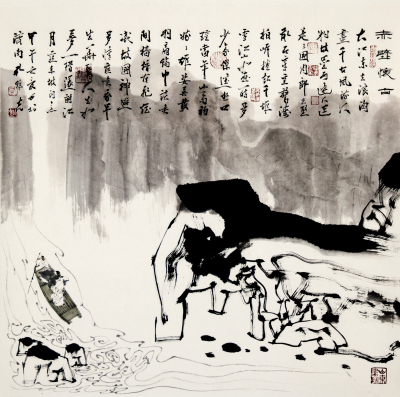 赤壁懷古
大江東去浪淘
盡千古風流人
物故垒西邊人道
是三國周郎赤壁
亂石穿空驚濤
拍岸捲起千堆
雪江山如畫一時多
少豪傑遙想公
瑾當年小喬初
嫁了雄姿英發
羽扇綸巾談笑
間檣櫓灰飛煙
滅故國神遊
多情應笑我早
生華髮人生如
夢一樽還酹江
月
甲午